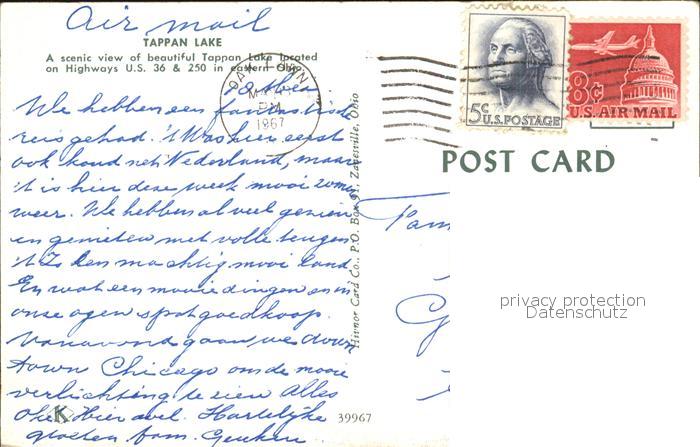 Air mail
TAPPAN LAKE
A scenic view of beautiful Tappan Lake located
on Highways U.S. 36 & 250 in eastern Ohio.
PM
1967
5c U.S. POSTAGE
8c
U.S. AIR MAIL
POST CARD
We hebben een fantastische
reis gehad. 't Was hier eerst
ook koud net Nederland, maar
't is hier deze week mooi zomer
weer. We hebben al veel gezien
en genieten met volle teugen
't Is een machtig mooi land.
En wat een mooie dingen en in
onze ogen spotgoedkoop.
Vanavond gaan we down
town Chicago om de mooie
verlichting te zien Alles
Oké Hier wel. Hartelijke
groeten fam. Geuken
Fam
Hivnor Card Co., P.O. Box 91, Zanesville, Ohio
39967
K
privacy protection
Datenschutz